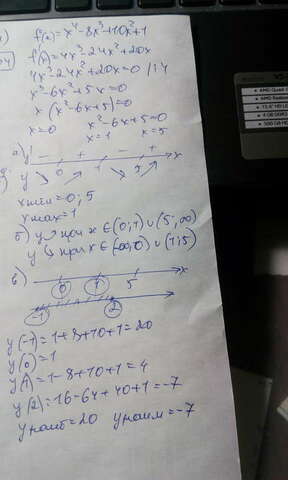 f(x)=x⁴-8x³+10x²+1
f'(x)=4x³-24x²+20x
4x³-24x²+20x=0 /:4
x³-6x²+5x=0
x(x²-6x+5)=0
x=0 x²-6x+5=0
x=1 x=5
а) y' - + - +
y 0 1 5 x
xmin=0; 5
xmax=1
б) y ↗ при x∈(0;1)∪(5;∞)
y ↘ при x∈(-∞;0)∪(1;5)
в) 0 1 5 x
-1 2
y(-1)=1+8+10+1=20
y(0)=1
y(1)=1-8+10+1=4
y(2)=16-64+40+1=-7
yнаиб=20 yнаим=-7
AMD Quad
AMD Radeon